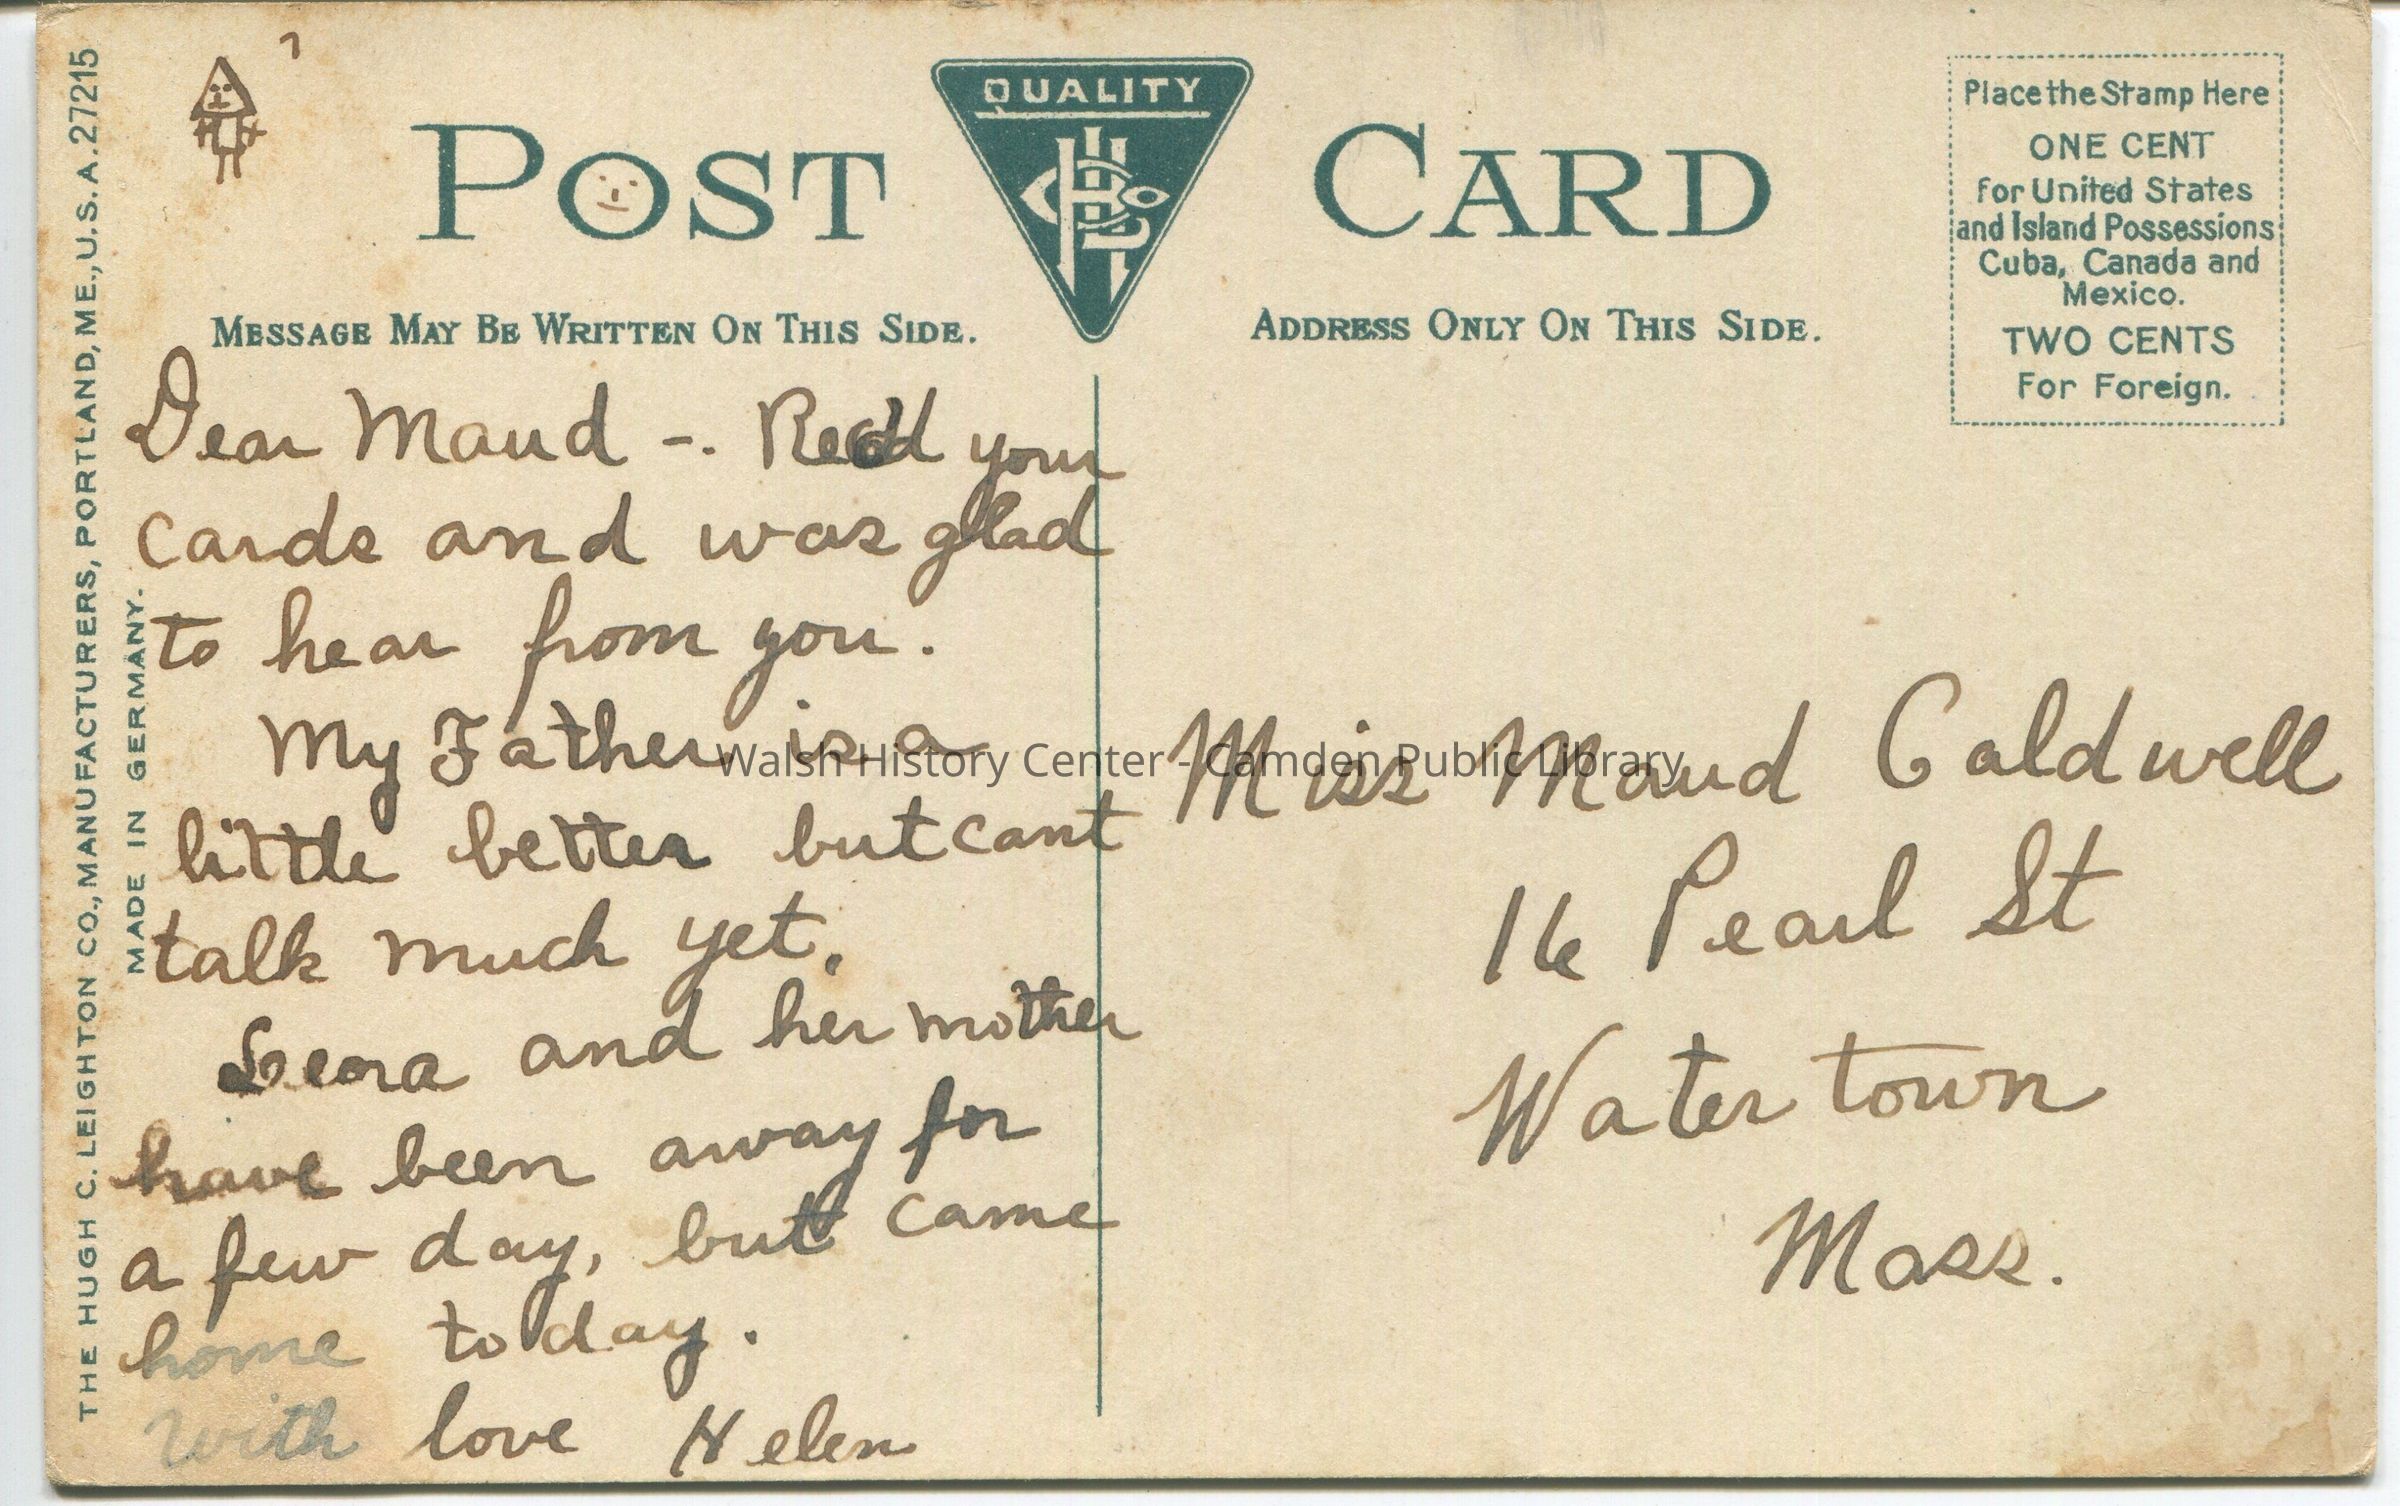 THE HUGH C. LEIGHTON CO., MANUFACTURERS, PORTLAND, ME., U.S.A. 27215
MADE IN GERMANY.
POST CARD
QUALITY
MESSAGE MAY BE WRITTEN ON THIS SIDE.
ADDRESS ONLY ON THIS SIDE.
Place the Stamp Here
ONE CENT
For United States
and Island Possessions
Cuba, Canada and
Mexico.
TWO CENTS
For Foreign.
Dear Maud -. Rec'd your
cards and was glad
to hear from you.
My Father is a
little better but cant
talk much yet.
Leora and her mother
have been away for
a few day, but came
home today.
With love Helen
Miss Maud Caldwell
16 Pearl St
Watertown
Mass.
Walsh History Center - Camden Public Library